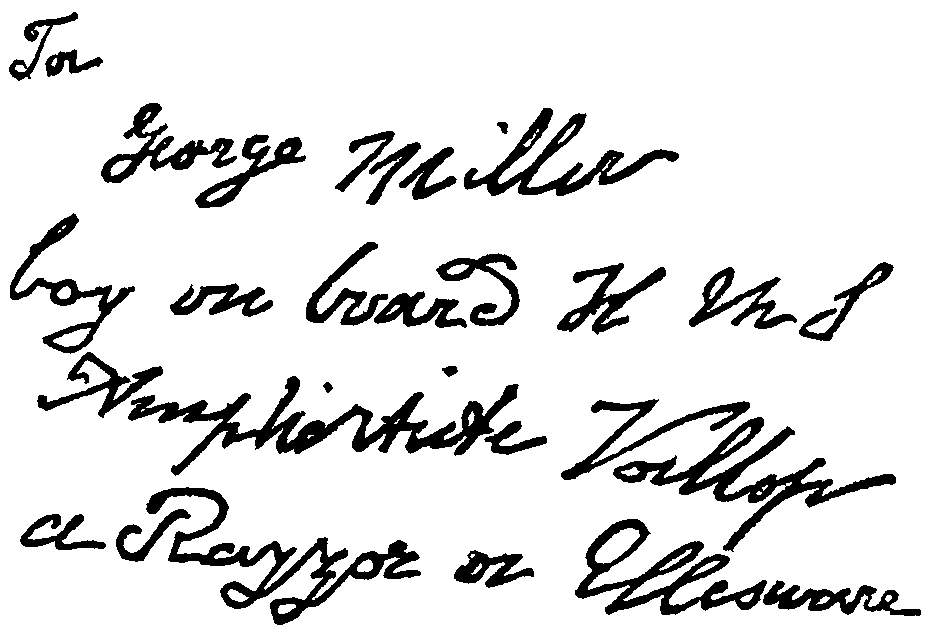 For
George Miller
boy on board H M S
Amphiertite Voillop
a Rayzor or Ellesware